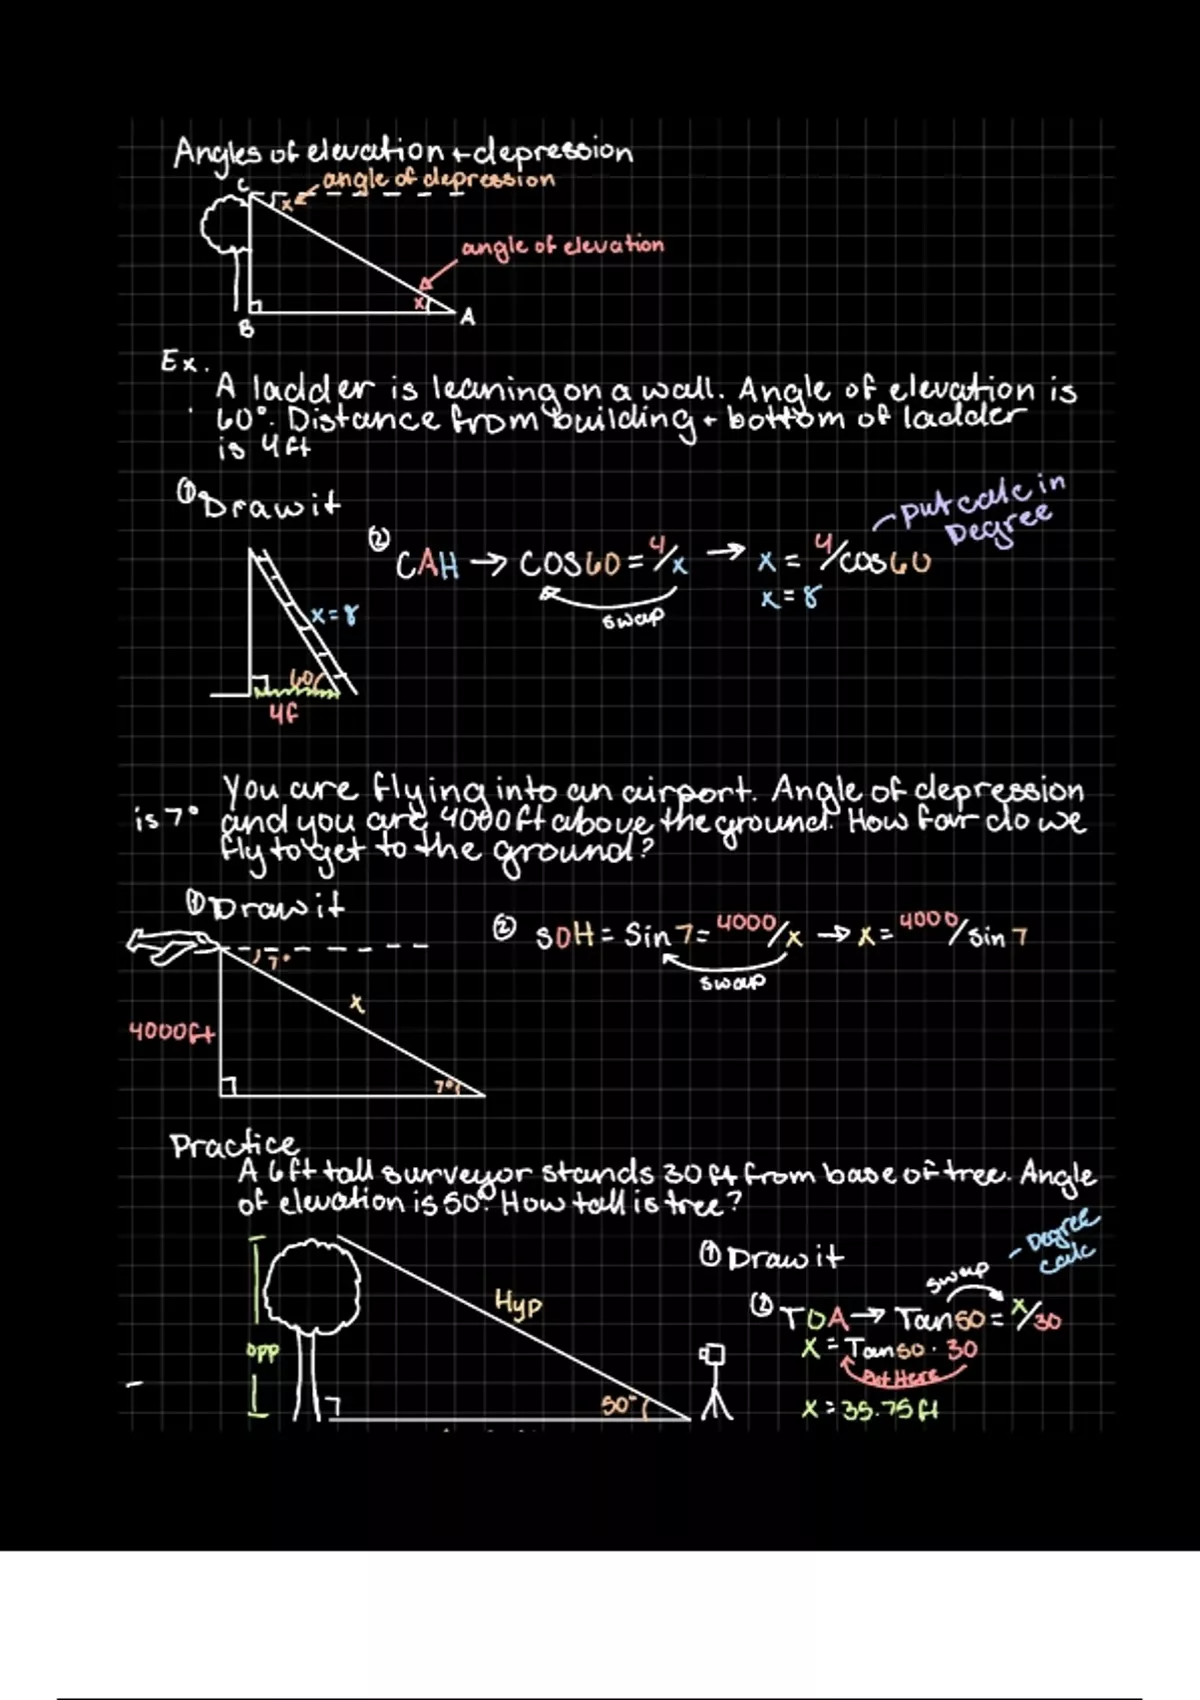 Angles of elevation + depression
C
angle of depression
x
angle of elevation
x
B
A
Ex.
A ladder is leaning on a wall. Angle of elevation is
60°. Distance from building + bottom of ladder
is 4ft
① Draw it
② CAH → COS60 = 4/x → x = 4/cos60
- put calc in
Degree
swap
x = 8
x = 8
60
4f
You are flying into an airport. Angle of depression
is 7° and you are 4000ft above the ground. How far do we
fly to get to the ground?
① Draw it
② SOH = Sin 7 = 4000/x → x = 4000/sin 7
swap
7°
x
4000ft
7°
Practice
A 6ft tall surveyor stands 30ft from base of tree. Angle
of elevation is 50°. How tall is tree?
① Draw it
- Degree
calc
swap
② TOA → Tan50 = x/30
x = Tan50 · 30
Put Here
x = 35.75ft
Hyp
opp
50°